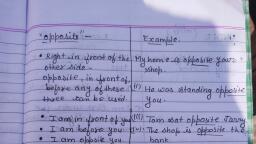 "opposite" -
Example.
• Right in front of the
other side -
opposite, in front of,
before any of these
three can be used.
My home is opposite your
shop.
(ii) He was standing opposite
you.
• I am in front of you
• I am before you
• I am opposite you
(iii) Tom sat opposite Fanny
(iv) The shop is opposite the
bank